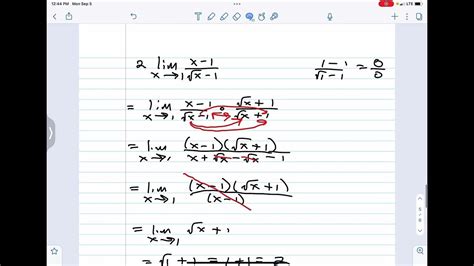 12:44 PM Mon Sep 5
LTE
2 lim x→1 (x-1)/(√x-1)    (1-1)/(√1-1) = 0/0
= lim x→1 (x-1)/(√x-1) · (√x+1)/(√x+1)
= lim x→1 (x-1)(√x+1)/(x+√x-√x-1)
= lim x→1 (x-1)(√x+1)/(x-1)
= lim x→1 √x+1
= √1+1=1+1=2